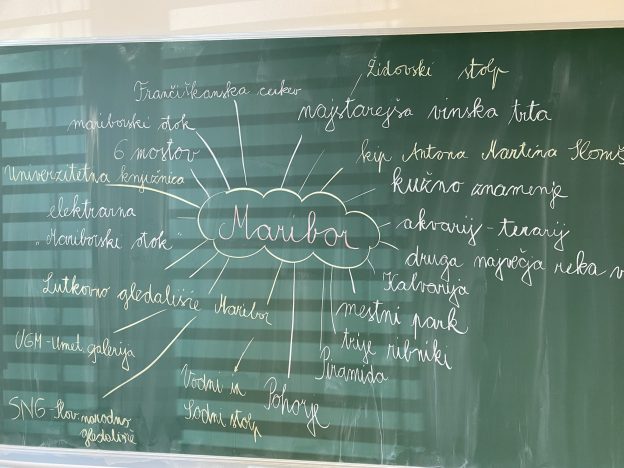 Židovski stolp
Frančiškanska cerkev
najstarejša vinska trta
mariborski otok
6 mostov
kip Antona Martina Slomš
Univerzitetna knjižnica
kužno znamenje
elektrarna
Maribor
akvarij - terarij
"Mariborski otok"
druga največja reka v
Kalvarija
Lutkovno gledališče Maribor
mestni park
trije ribniki
UGM - Umet. galerija
Piramida
Vodni in
Sodni stolp
Pohorje
SNG - Slov. narodno
gledališče